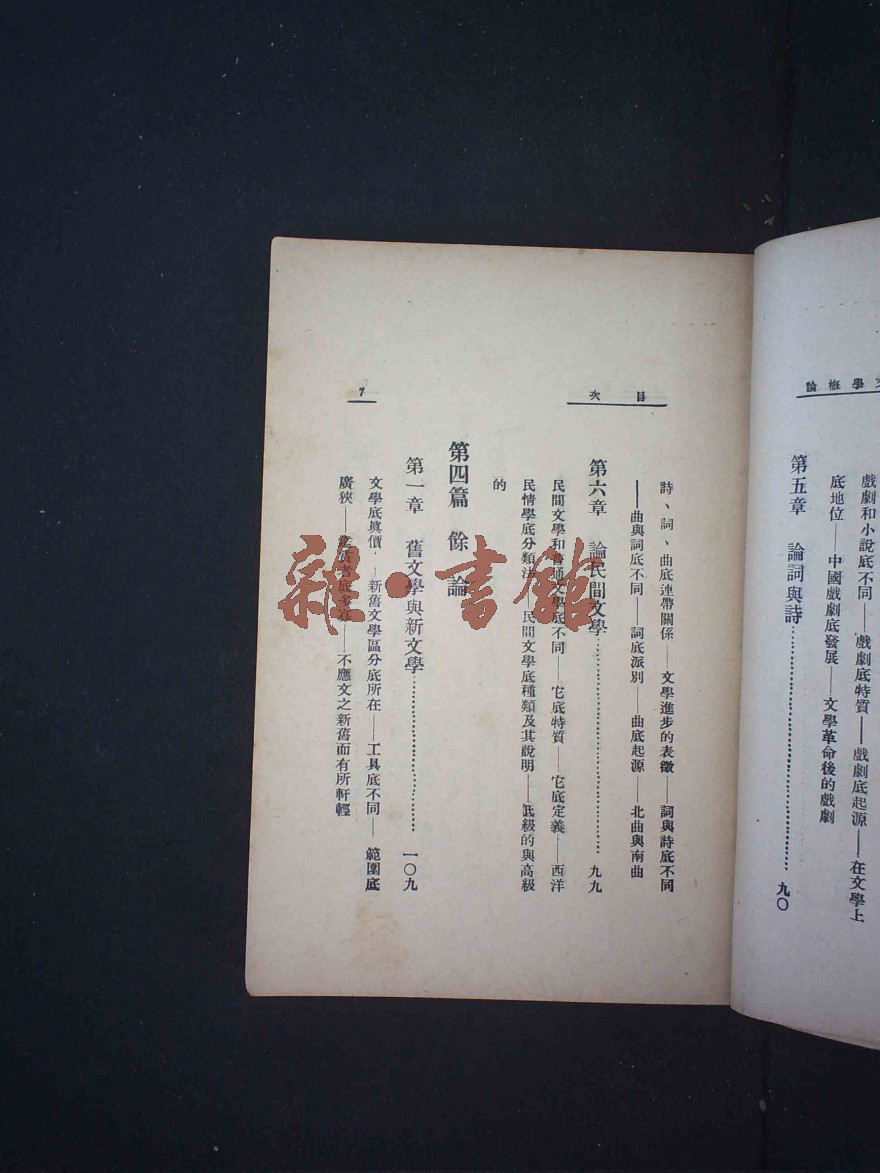 文學概論
戲劇和小說底不同——戲劇底特質——戲劇底起源——在文學上
底地位——中國戲劇底發展——文學革命後的戲劇
第五章 論詞與詩……九〇
目次
7
詩、詞、曲底連帶關係——文學進步的表徵——詞與詩底不同
——曲與詞底不同——詞底派別——曲底起源——北曲與南曲
第六章 論民間文學……九九
民間文學和普通文學底不同——它底特質——它底定義——西洋
民情學底分類法——民間文學底種類及其說明——低級的與高級
的
第四篇 餘論
第一章 舊文學與新文學……一〇九
文學底真價——新舊文學區分底所在——工具底不同——範圍底
廣狹——鑑賞者底多寡——不應文之新舊而有所軒輕
雜·書館